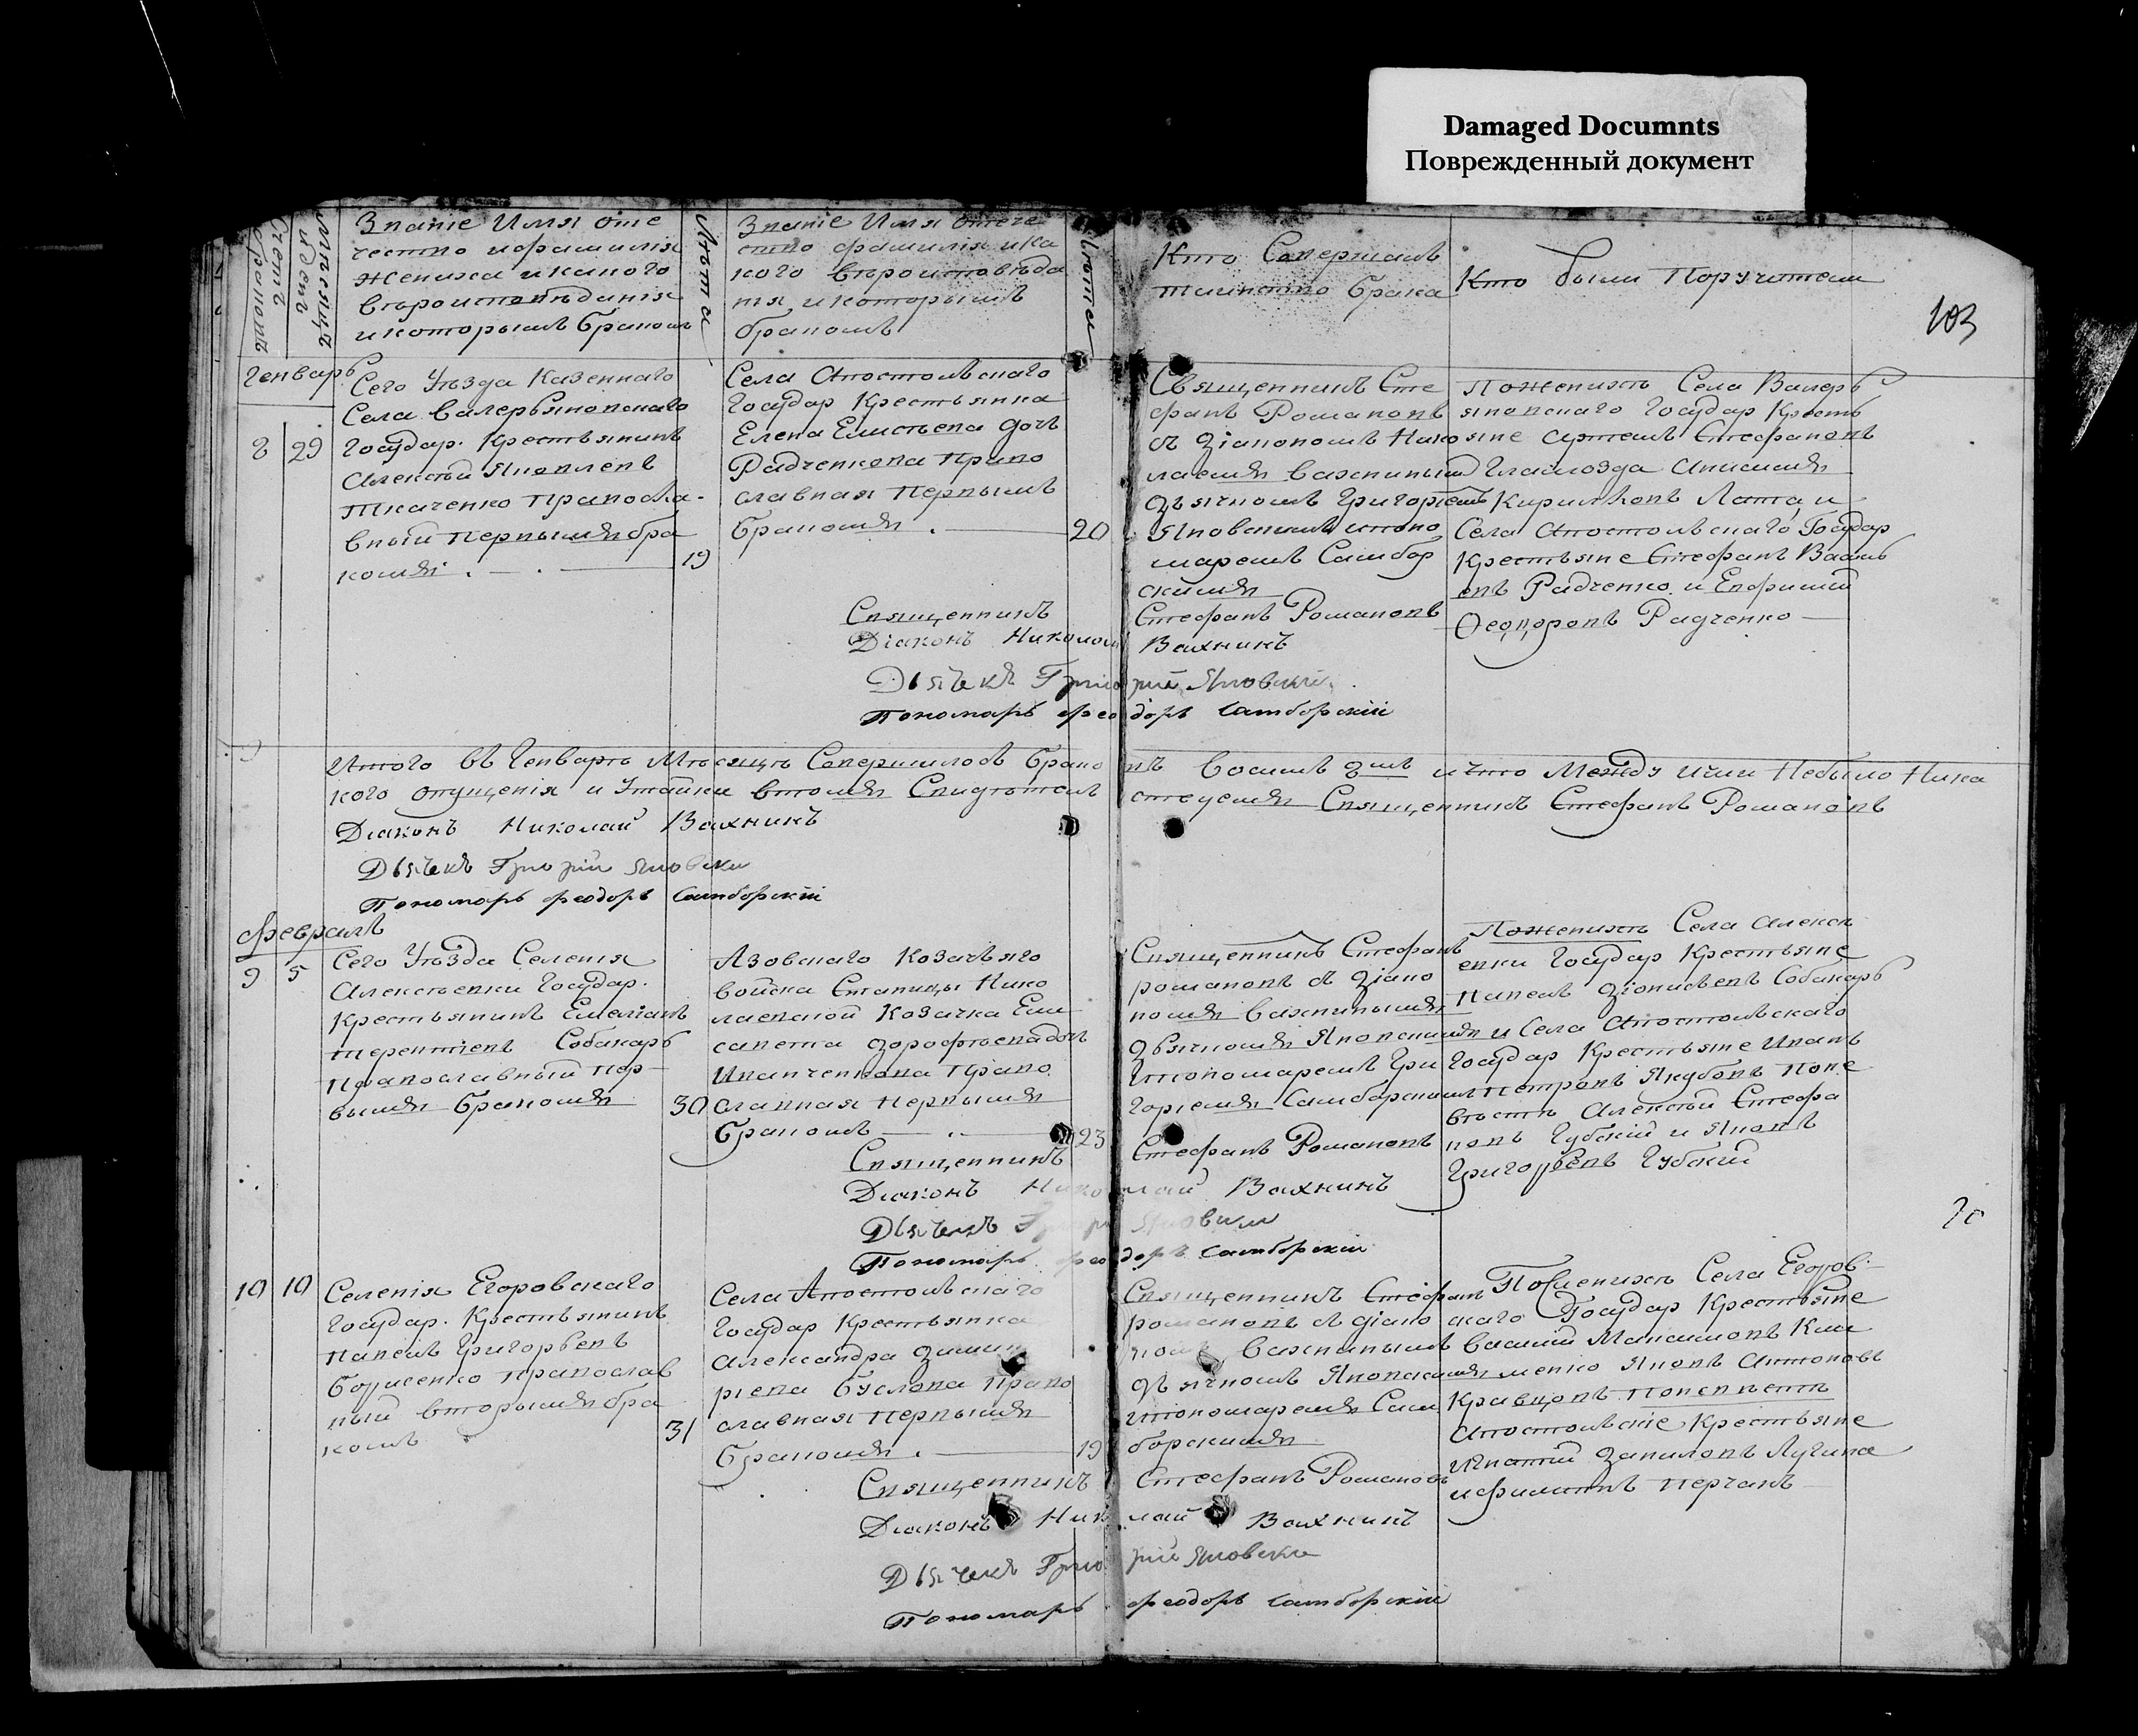 Damaged Documnts
Поврежденный документ
103
Счетъ браковъ
Мѣсяцъ и день
Званіе Имя оте
чество и фамилія
жениха и какого
вѣроисповѣданія
и которымъ бракомъ
Лѣта
Званіе Имя отече
ство фамилія и ка
кого вѣроисповѣда
нія, и которымъ
бракомъ
Лѣта
Кто Совершалъ
таинство брака
Кто были Поручители
Генварь
8
29
Сего Уѣзда Казеннаго
Села Валерьяновскаго
Государ. Крестьянинъ
Алексѣй Яковлевъ
Ткаченко Правосла-
вный первымъ бра
комъ.
19
Села Апостольскаго
Государ Крестьянка
Елена Елисѣева дочь
Радченкова Право
славная первымъ
бракомъ.
20
Священникъ Сте
фанъ Романовъ
съ Діакономъ Нико
лаемъ Вахнинымъ
дьячкомъ Григоріемъ
Яновскимъ и поно
маремъ Самбор
скимъ
По женихѣ Села Валерь
яновскаго Государ Кресть
яне Артемъ Стефановъ
Кириковъ Лата, и
Села Апостольскаго Государ
Крестьяне Стефанъ Василь
евъ Радченко и Евфимій
Феодоровъ Радченко
Священникъ Стефанъ Романовъ
Діаконъ Николай Вахнинъ
Дьячекъ Григорій Яновскій
Пономарь Феодоръ Самборскій
Итого въ Генварѣ Мѣсяцѣ Совершилось брако
въ восемь 8мь и что Между ими Небыло Ника
кого опущенія и Утайки в томъ Свидѣтель
ствуемъ Священникъ Стефанъ Романовъ
Діаконъ Николай Вахнинъ
Дьячекъ Григорій Яновски
Пономарь Феодоръ Самборскій
Февраль
9
5
Сего Уѣзда Селенія
Алексѣевки Государ.
Крестьянинъ Емеліанъ
Терентіевъ Собакарь
Православный пер-
вымъ бракомъ
30
Азовскаго Козачьяго
войска Станицы Нико
лаевской Козачка Ели
савета Дорофѣева дочь
Иванченкова Право
славная первымъ
бракомъ
23
Священникъ Стефанъ
Романовъ съ Діако
номъ Вахнинымъ
дьячкомъ Яновскимъ
и пономаремъ Гри
горіемъ Самборскимъ
По женихѣ Села Алексѣ
евки Государ Крестьяне
Павелъ Діонисьевъ Собакарь
и Села Апостольскаго
Государ Крестьяне Иванъ
Петровъ Якубовъ По не
вѣстѣ Алексѣй Стефа
новъ Губскій и Яковъ
Григорьевъ Губскій
Священникъ Стефанъ Романовъ
Діаконъ Николай Вахнинъ
Дьячекъ Григорій Яновски
Пономарь Феодоръ Самборскій
10
10
Селенія Егоровскаго
Государ. Крестьянинъ
Павелъ Григорьевъ
Борисенко Православ
ный вторымъ бра
комъ
31
Села Апостольскаго
Государ Крестьянка
Александра Дими
ріева Буслова Право
славная первымъ
бракомъ.
19
Священникъ Стефанъ
Романовъ съ Діако
номъ Вахнинымъ
дьячкомъ Яновскимъ
и пономаремъ Сам
борскимъ
По женихѣ Села Егоров-
скаго Государ Крестьяне
Василій Максимовъ Кли
менко Яковъ Антоновъ
Кравцовъ По невѣстѣ
Апостольскіе Крестьяне
Игнатій Даниловъ Лучина
и Филиппъ Перчакъ
Священникъ Стефанъ Романовъ
Діаконъ Николай Вахнинъ
Дьячекъ Григорій Яновски
Пономарь Феодоръ Самборскій